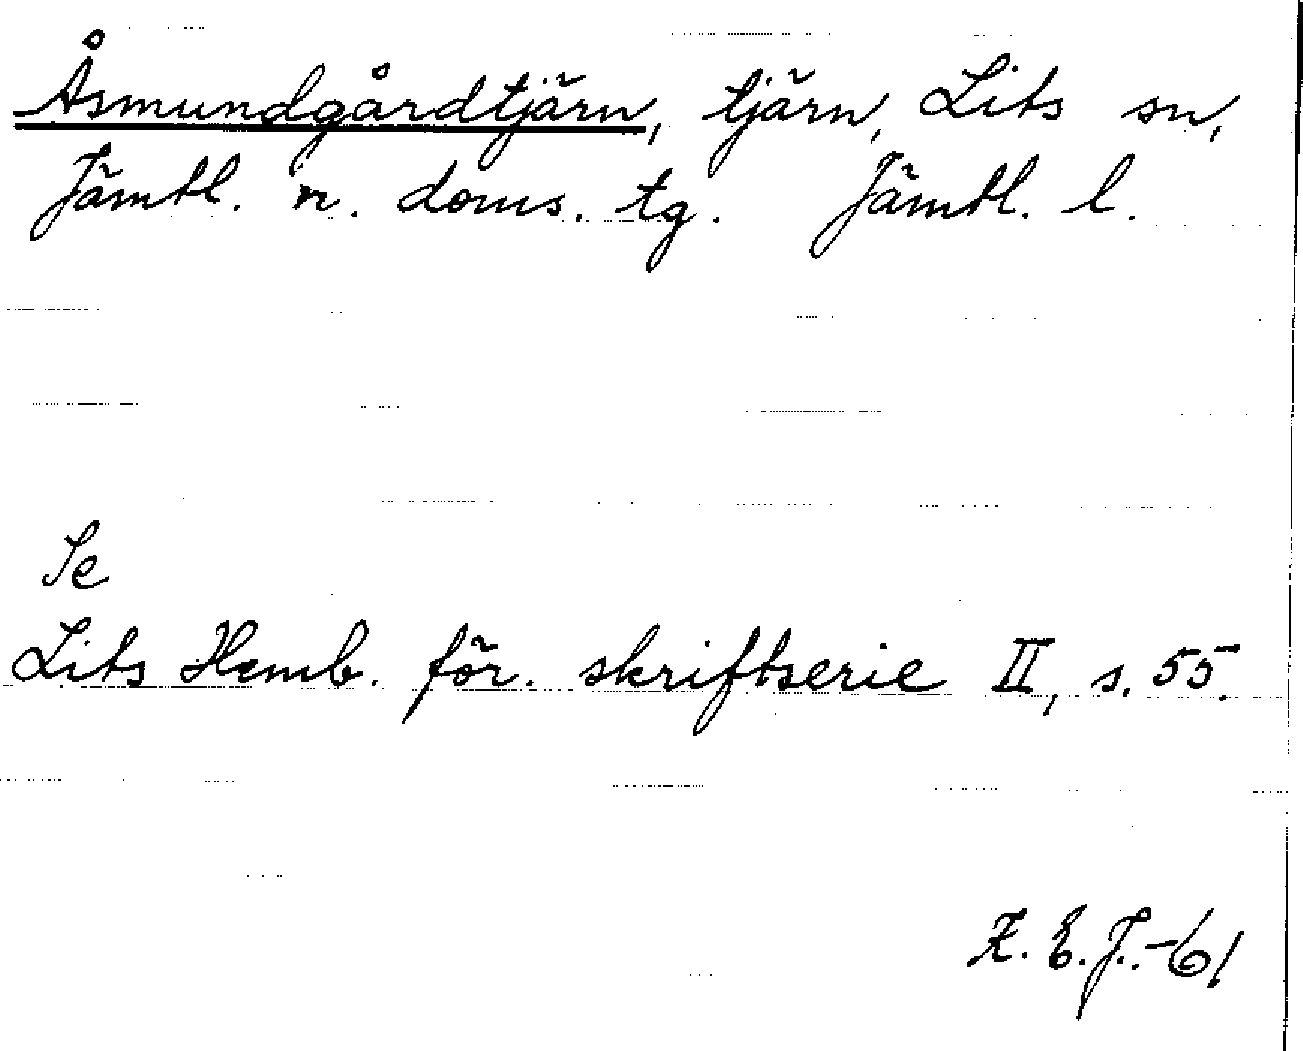 Åsmundgårdtjärn, tjärn, Lits sn,
Jämtl. n. doms. tg. Jämtl. l.
Se
Lits Hemb. för. skriftserie II, s. 55.
K. E. J. -61